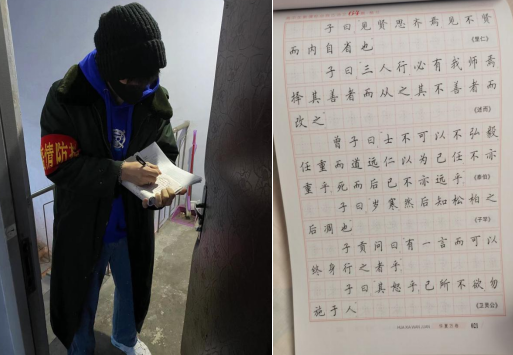 情防
子曰见贤思齐焉见不贤
而内自省也
《里仁》
子曰三人行必有我师焉
择其善者而从之其不善者而
改之
《述而》
曾子曰士不可以不弘毅
任重而道远仁以为己任不亦
重乎死而后已不亦远乎
《泰伯》
子曰岁寒然后知松柏之
后凋也
《子罕》
子贡问曰有一言而可以
终身行之者乎
子曰其恕乎己所不欲勿
施于人
《卫灵公》
华夏万卷